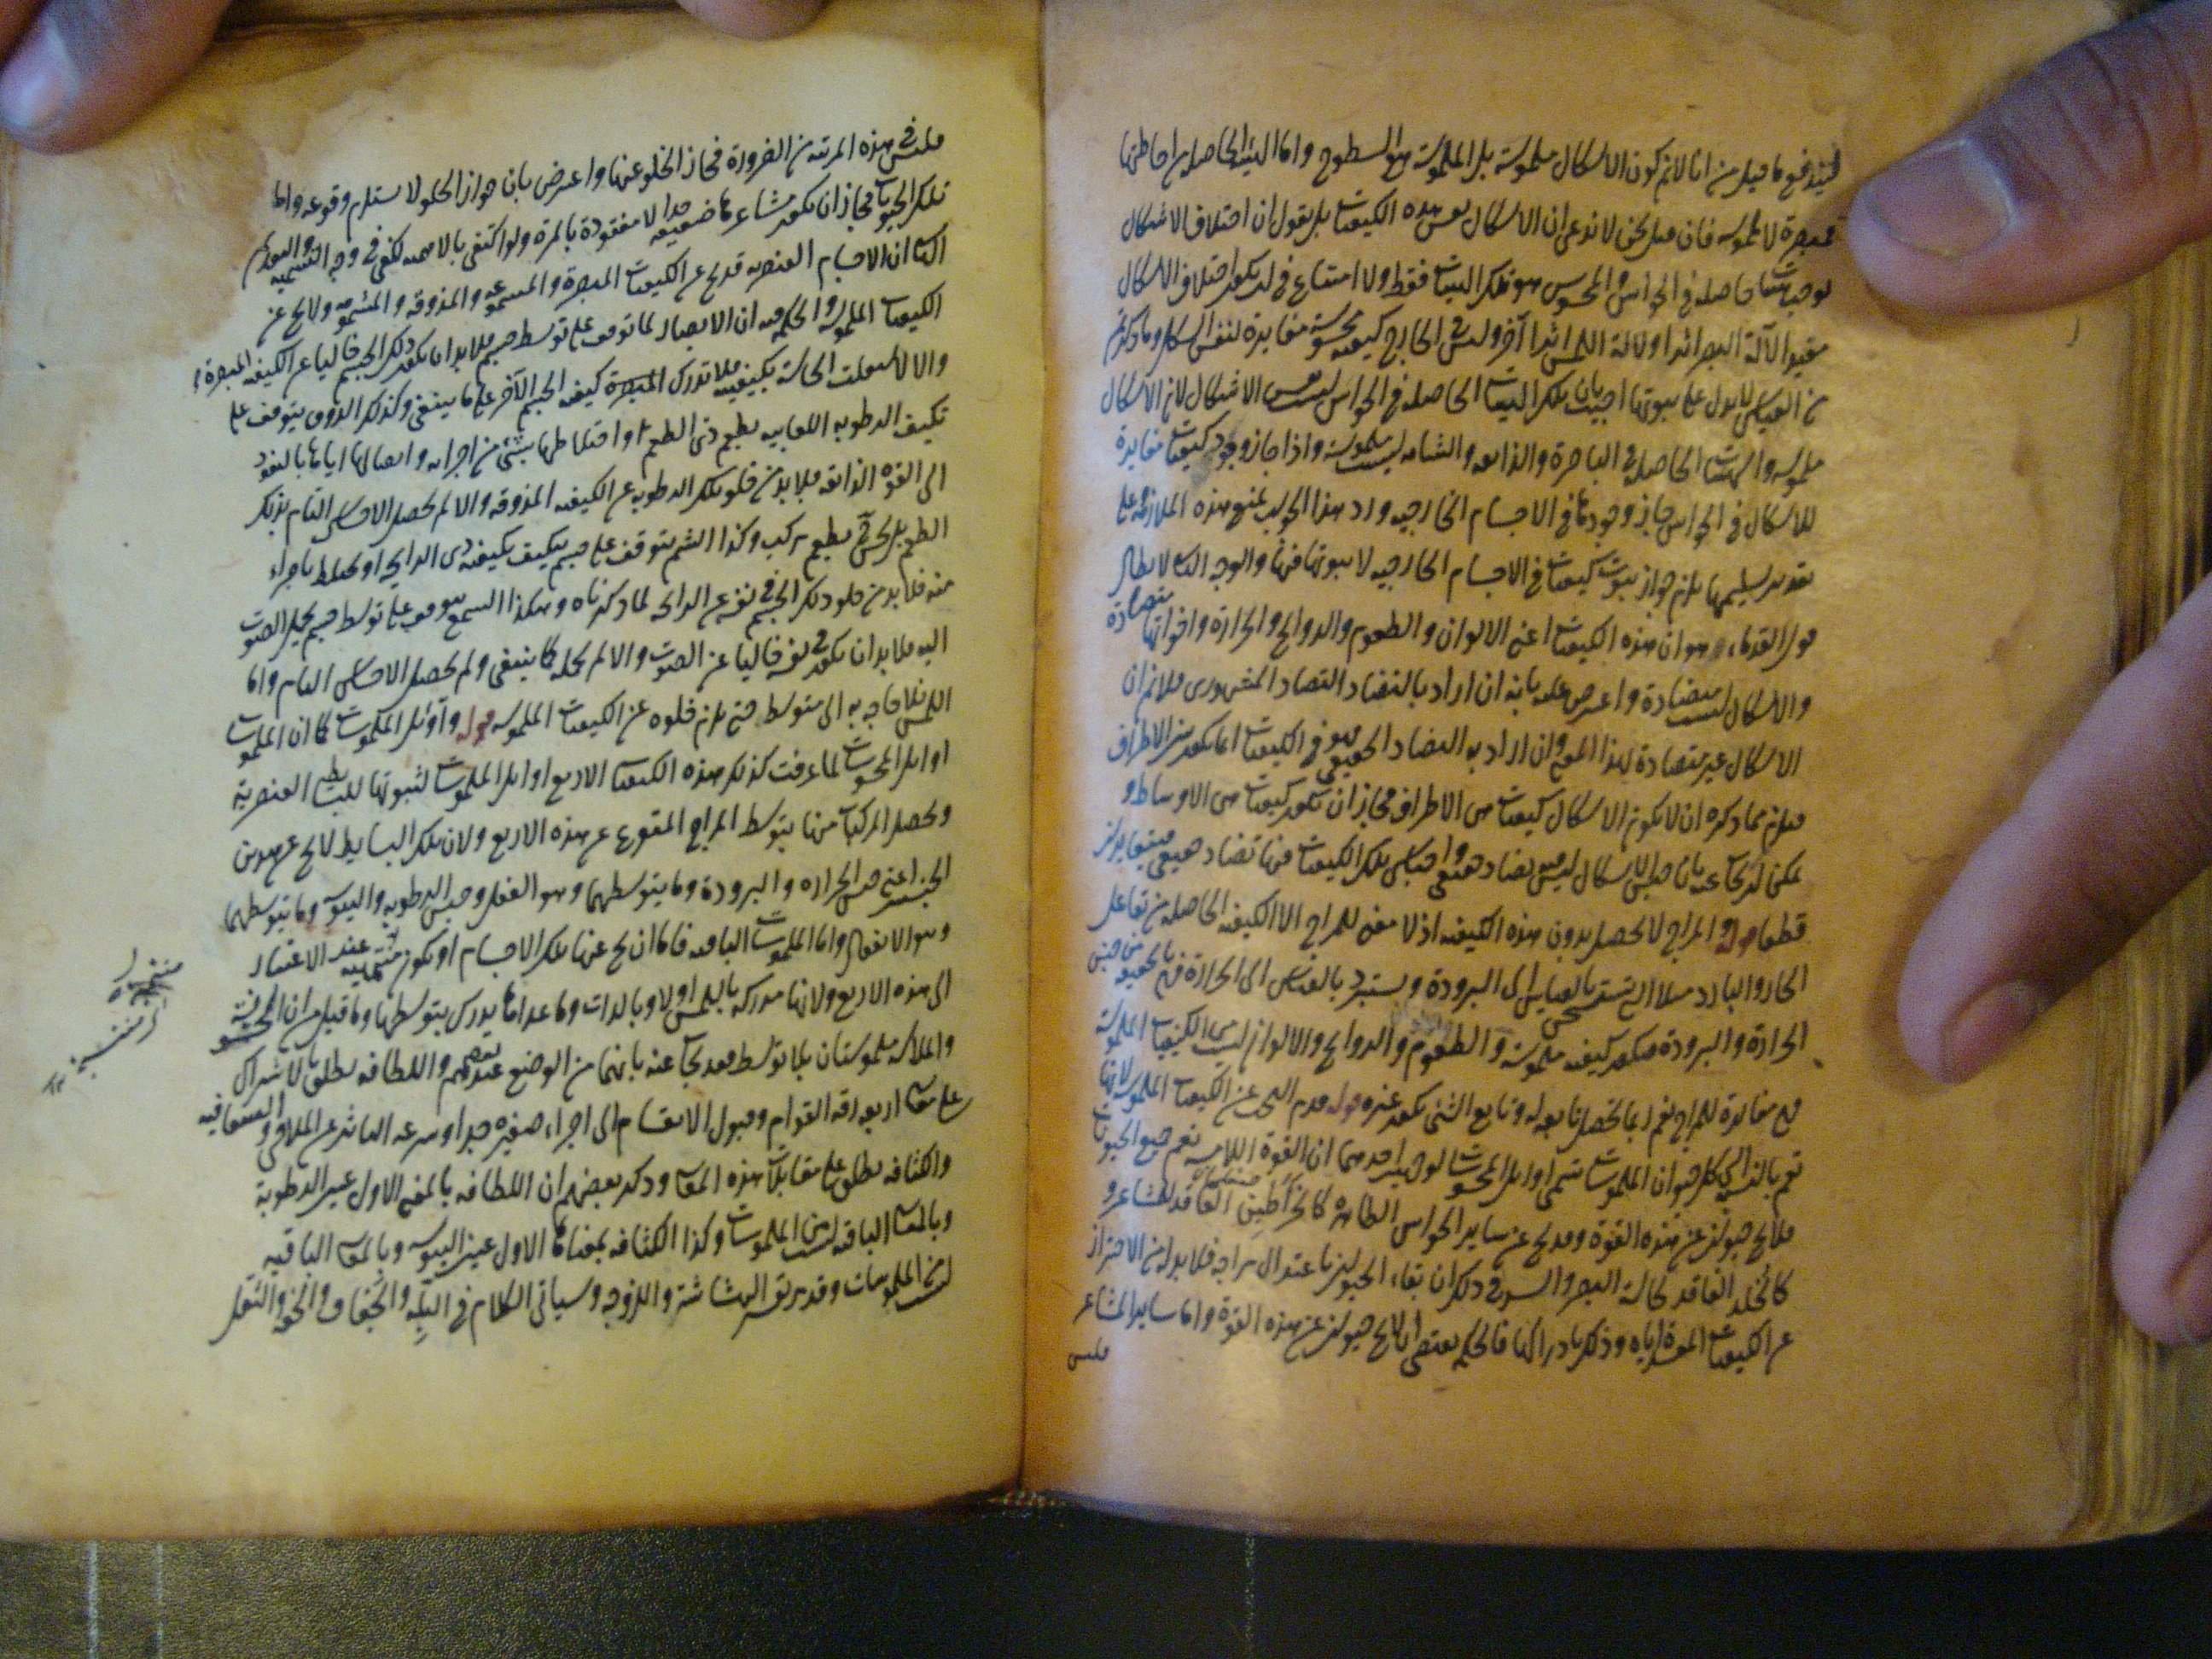 فيندفع ما قيل من انا لانم كون الاشكال ملموسة بل الملموسة هو السطوح واما الهيئة الحاصلة من احاطتها
فمبصرة لا ملموسة فان قيل نحن لا ندعى ان الاشكال نفس هذه الكيفيات بل نقول ان اختلاف الاشكال
يوجب هيئات حاصلة في الحواس والمحسوس هو تلك الهيئات فقط ولا امتناع في ان يكون اختلاف الاشكال
مفيدا لآلة البصر اثرا ولآلة اللمس اثرا آخر وليس في الخارج كيفية محسوسة مغايرة لنفس الشكل وما ذكرتم
من القياس لا يدل على ثبوتها اجيب بان تلك الهيئات الحاصلة في الحواس ليست نفس الاشكال لان الاشكال
ملموسة والهيئات الحاصلة في الباصرة والذائقة والشامة ليست ملموسة واذا جاز وجود كيفيات مغايرة
للاشكال في الحواس جاز وجودها في الاجسام الخارجية ورد هذا الجواب بمنع هذه الملازمة وعلى
تقدير تسليمها يلزم جواز ثبوت كيفيات في الاجسام الخارجية لا ثبوتها فيها والوجه الثانى لابطال
قول القدماء هو ان هذه الكيفيات اعنى الالوان والطعوم والروايح والحرارة واخواتها متضادة
والاشكال ليست متضادة واعترض عليه بانه ان اراد بالتضاد التضاد المشهورى فلانم ان
الاشكال غير متضادة بهذا المعنى وان اراد به التضاد الحقيقى فهو في الكيفيات انما يكون بين الاطراف
فيلزم مما ذكره ان لا تكون الاشكال كيفيات هى الاطراف فجاز ان تكون كيفيات هى الاوساط و
يمكن ان يجاب عنه بان جنس الاشكال ليس فيه تضاد حقيقى واجناس تلك الكيفيات فيها تضاد حقيقى فيتغايران
قطعا قوله والمزاج لا يحصل بدون هذه الكيفية اذ لا معنى للمزاج الا الكيفية الحاصلة من تفاعل
الحار والبارد مثلا التى تستسخن بالقياس الى البرودة وتستبرد بالقياس الى الحرارة فهى بالحقيقة من جنس
الحرارة والبرودة فتكون كيفية ملموسة والطعوم والروايح والالوان ليست من الكيفيات الملموسة
فهى مغايرة للمزاج نعم ربما تحصل تابعة له وتابع الشئ يكون غيره قوله قدم البحث عن الكيفيات الملموسة لانها
تعم بالنسبة الى كل حيوان الملموسات تسمى اوايل المحسوسات لوجهين احدهما ان القوة اللامسة تعم جميع الحيوانات
فلا يخ حيوان عن هذه القوة وقد يخ عن ساير الحواس الظاهرة كالخراطين الفاقد للمشاعر و
كالخلد الفاقد لحاسة البصر والسر في ذلك ان بقاء الحيوان باعتدال مزاجه فلابد له من الاحتراز
عن الكيفيات المفسدة اياه وذلك بادراكها فالحكمة تقتضى ان لا يخ حيوان عن هذه القوة واما ساير المشاعر
فليس
فليس في هذه المرتبة من الضرورة فجاز الخلو عنها واعترض بان جواز الخلو لا يستلزم وقوعه واما
تلك الحيوانات فجاز ان تكون مشاعرها ضعيفة جدا لا مفقودة بالمرة ولو اكتفى بالاهمية لكفى في وجه التسمية والتقديم
الثانى ان الاجسام العنصرية قد يخ عن الكيفيات المبصرة والمسموعة والمذوقة والمشمومة ولا يخ عن
الكيفيات الملموسة والحكمة فيه ان الابصار لما توقف على توسط جسم فلابد ان يكون ذلك الجسم خاليا عن الكيفية المبصرة
والا لاشتغلت الحاسة بكيفيته فلا تدرك كيفية الجسم الآخر على ما ينبغى وكذلك الذوق يتوقف على
تكيف الرطوبة اللعابية بطعم ذى الطعم او اختلاطها بشئ من اجزائه وايصالها اياها بالنفوذ
الى القوة الذائقة فلابد من خلو تلك الرطوبة عن الكيفية المذوقة والا لم يحصل الاحساس التام بذلك
الطعم بل يحس بطعم مركب وكذا الشم يتوقف على جسم يتكيف بكيفية ذى الرايحة او يختلط باجزاء
منه فلابد من خلو ذلك الجسم في نفسه عن الرايحة لما ذكرناه وهكذا السمع يتوقف على توسط جسم يحمل الصوت
اليه فلابد ان يكون في نفسه خاليا عن الصوت والا لم يحمله كما ينبغى ولم يحصل الاحساس التام واما
اللمس فلا حاجة به الى متوسط حتى يلزم خلوه عن الكيفيات الملموسة قوله واوايل الملموسات كما ان الملموسات
اوايل المحسوسات لما عرفت كذلك هذه الكيفيات الاربع اوايل الملموسات لثبوتها للبسايط العنصرية
وتحصل المركبات منها بتوسط المزاج المتفرع عن هذه الاربع ولان تلك البسايط لا يخ عن هذين
الجنسين اعنى جنس الحرارة والبرودة وما يتوسطهما وهو الفعل وجنس الرطوبة واليبوسة وما يتوسطهما
وهو الانفعال واما الملموسات الباقية فاما ان يخ عنها تلك الاجسام او تكون منتمية عند الاعتبار
الى هذه الاربع ولانها مدركة باللمس اولا وبالذات وما عداها يدرك بتوسطها وما قيل من ان الخشونة
والملاسة ملموستان بلا توسط فقد يجاب عنه بانهما من الوضع عند بعضهم واللطافة يطلق بالاشتراك
على معان اربعة رقة القوام وقبول الانقسام الى اجزاء صغيرة جدا وسرعة التاثر عن الملاقى والشفافية
والكثافة يطلق على مقابلات هذه المعانى وذكر بعضهم ان اللطافة بالمعنى الاول عين الرطوبة
وبالمعانى الباقية ليست من الملموسات وكذا الكثافة بمعناها الاول عين اليبوسة وبالمعانى الباقية
ليست من الملموسات وقد مر تفسير الهشاشة واللزوجة وسياتى الكلام في البلة والجفاف والخفة والثقل